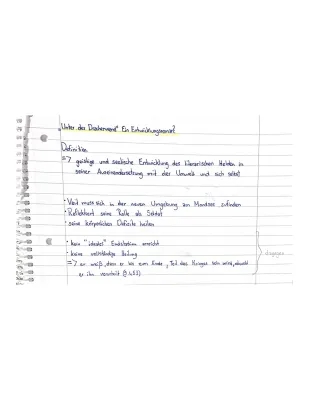 "Unter der Drachenwand" Ein Entwicklungsroman?
Definition
=> geistige und seelische Entwicklung des literarischen Helden in
seiner Auseinandersetzung mit der Umwelt und sich selbst
· Veit muss sich in der neuen Umgebung am Mondsee zufinden
· Reflektiert seine Rolle als Soldat
· seine körperlichen Defizite heilen
· kein "ideales" Endstadium erreicht
· keine vollständige Heilung
dagegen
=> er weiß, dass er bis zum Ende, Teil des Krieges sein wird, obwohl
er ihn verurteilt